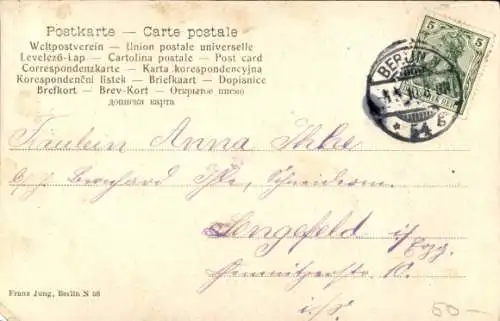 Postkarte — Carte postale
Weltpostverein — Union postale universelle
Levelező-Lap — Cartolina postale — Post card
Correspondenzkarte — Karta korespondencyjna
Korespondenční lístek — Briefkaart — Dopisnice
Brefkort — Brev-Kort — Открытое письмо
дописна карта
5 5
BERLIN
54
Fräulein Anna Ihle
Bernhard Ihle, Schneiderm.
Lengefeld i/
Erzg.
Chemnitzerstr 10.
i./S.
Franz Jung, Berlin N 58
50-